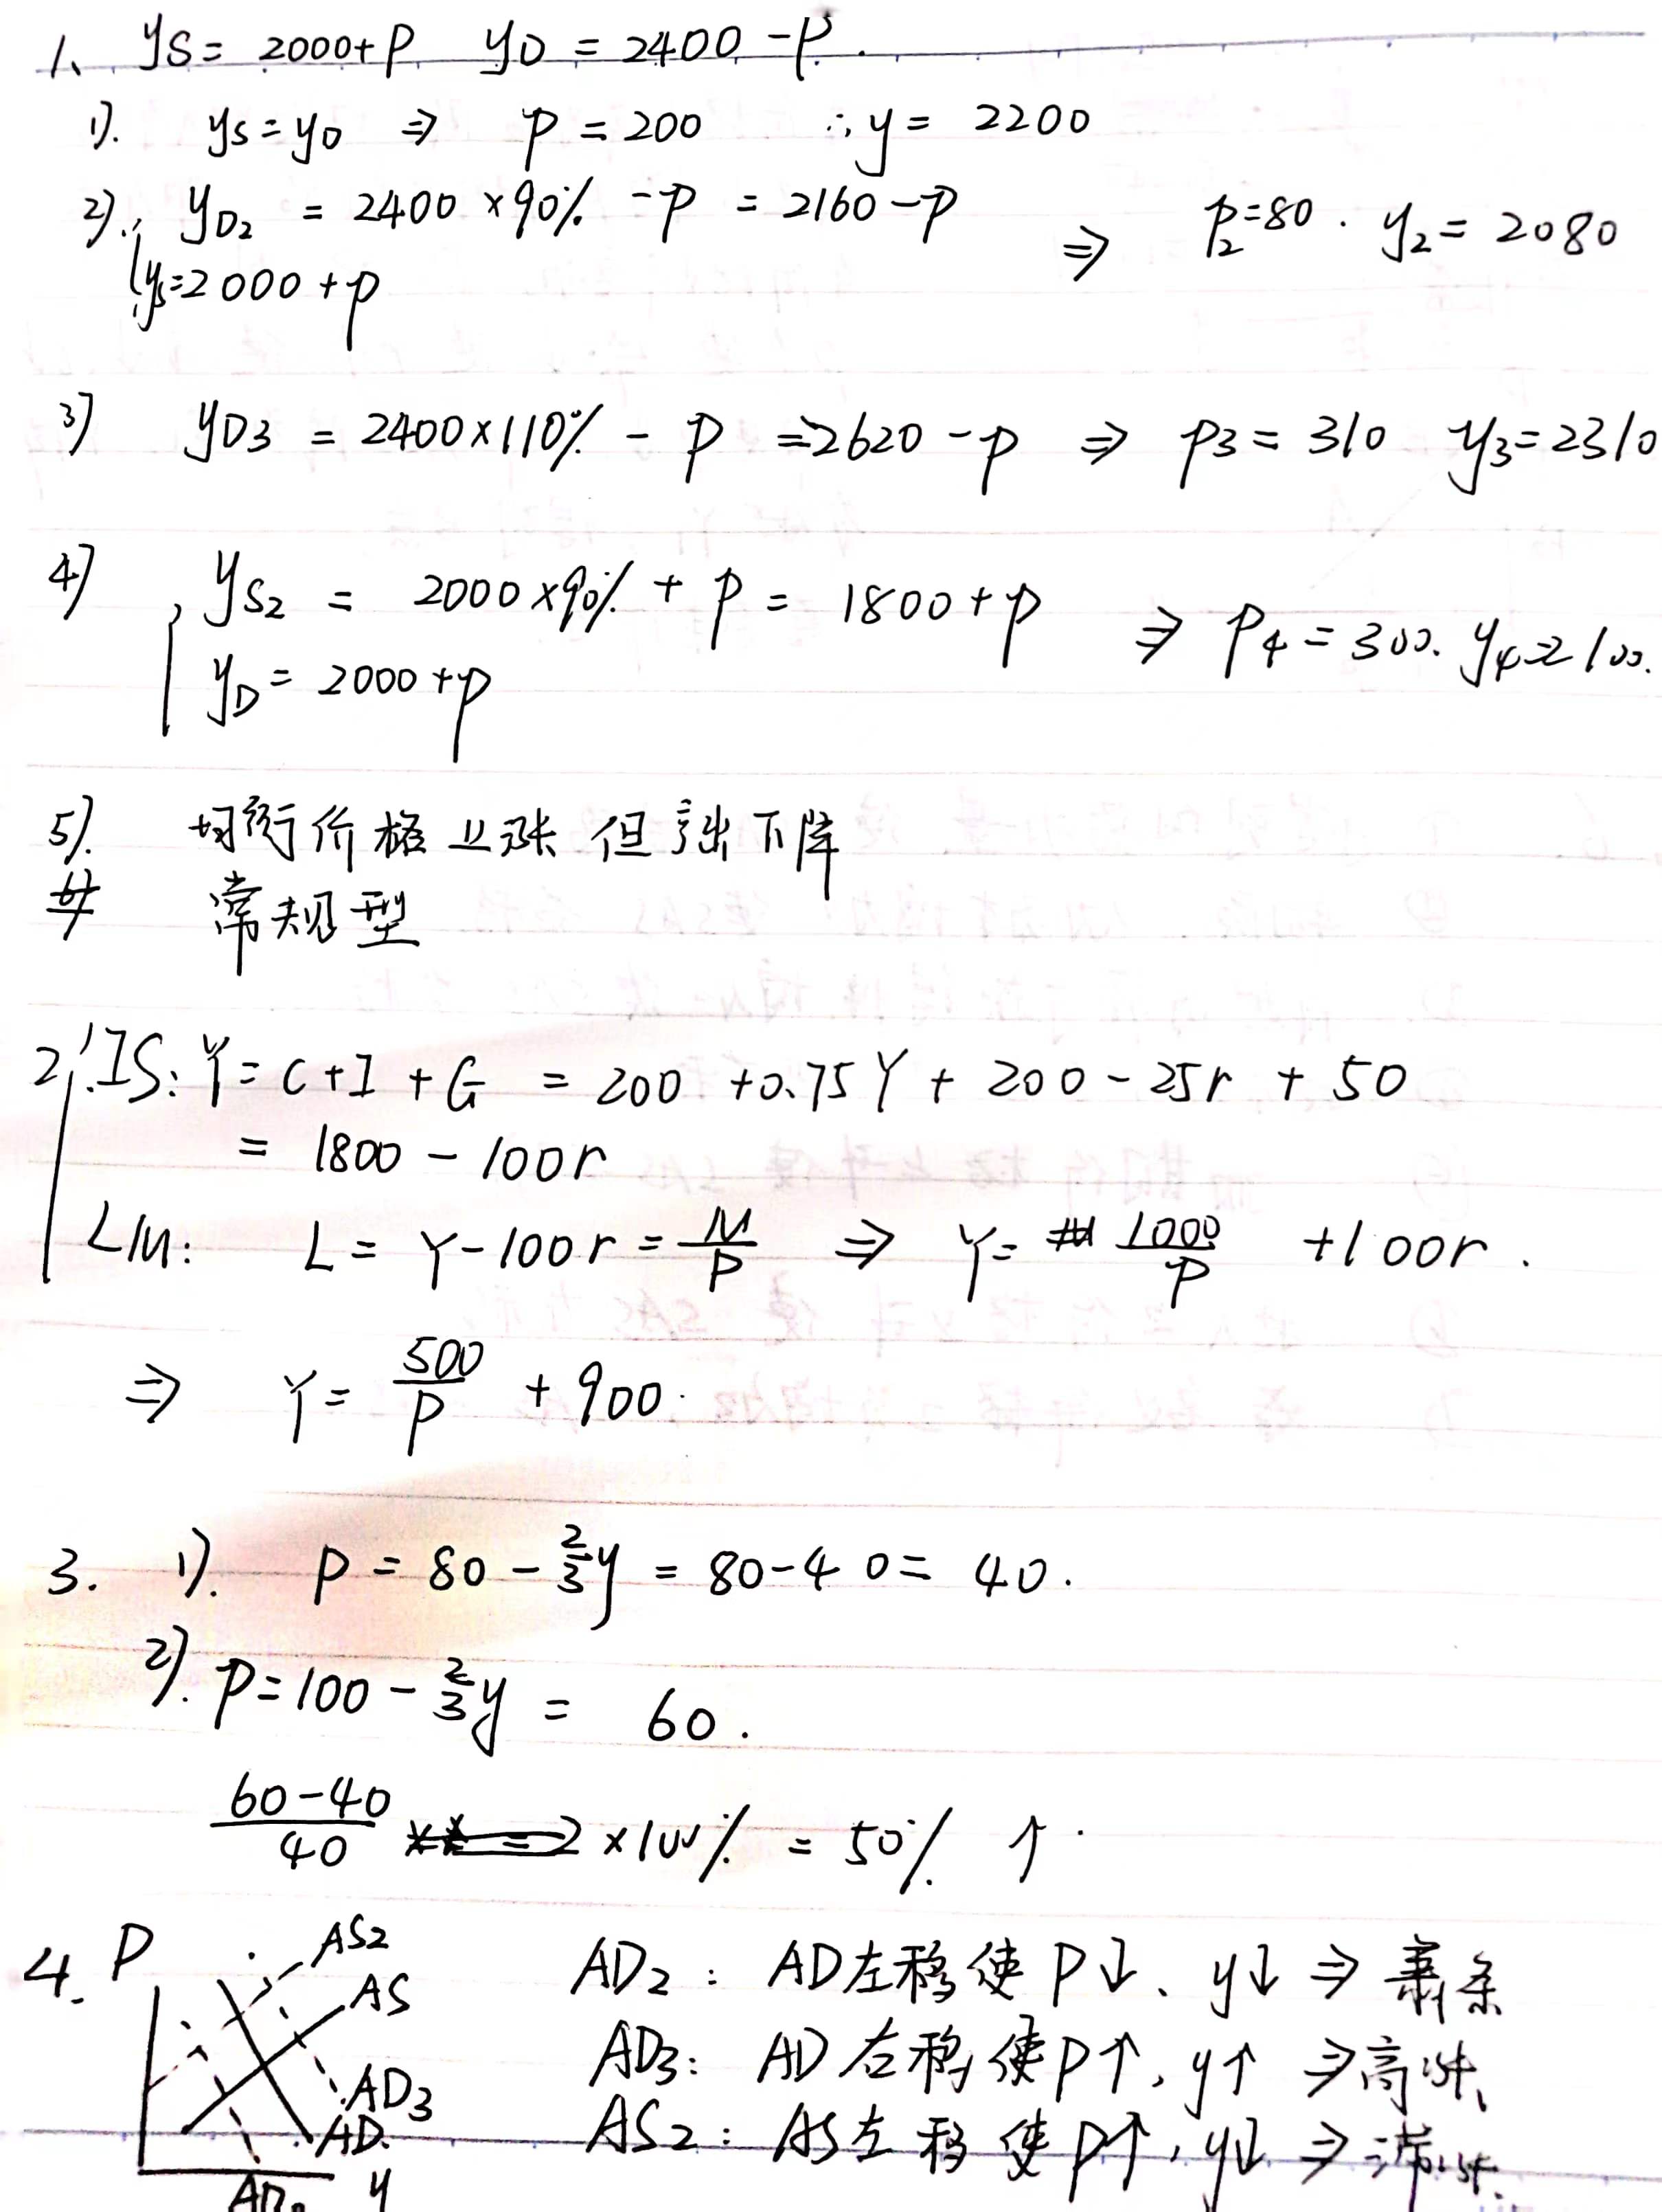 1、 yS = 2000+P yD = 2400 -P.
1). yS = yD ⇒ P = 200 ∴ y = 2200
2). yD2 = 2400 ×90% -P = 2160-P ⇒ P2=80 . y2 = 2080
yS=2000+P
3) yD3 = 2400×110% - P =2620-P ⇒ P3 = 310 y3=2310
4) yS2 = 2000×90% + P = 1800+P ⇒ P4 = 300. y4=2100.
yD = 2000+P
5). 均衡价格上涨 但 下降
常规型
2. IS: Y = C+I+G = 200 +0.75Y + 200-25r + 50
= 1800 - 100r
LM: L = Y-100r = M/P ⇒ Y= 1000/P +100r .
⇒ Y = 500/P + 900.
3. 1). P = 80 - 2/3y = 80-40 = 40.
2). P=100 - 2/3y = 60.
60-40/40 ×100% = 50% ↑.
4. P AS2 AD2 : AD左移使P↓、y↓ ⇒ 萧条
AS AD3: AD右移使P↑, y↑ ⇒高涨
AD3 AS2: AS左移使P↑, y↓ ⇒滞涨
AD
AD2 y